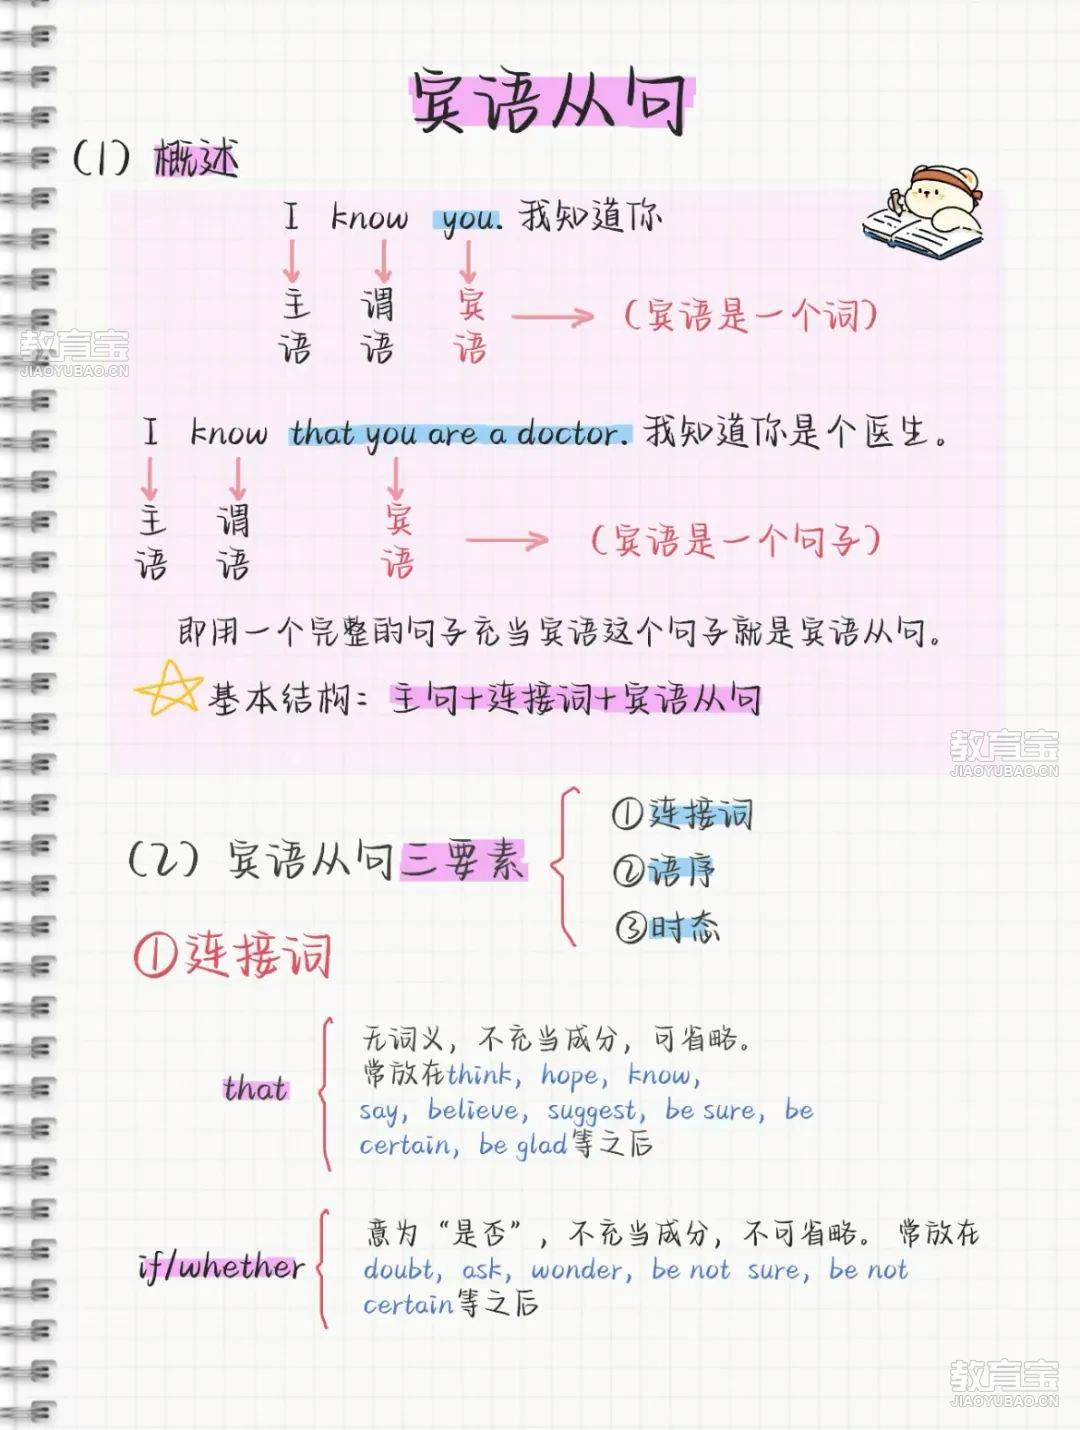 宾语从句
(1) 概述
I know you. 我知道你
主语 谓语 宾语 → (宾语是一个词)
I know that you are a doctor. 我知道你是个医生。
主语 谓语 宾语 → (宾语是一个句子)
即用一个完整的句子充当宾语这个句子就是宾语从句。
基本结构: 主句+连接词+宾语从句
(2) 宾语从句三要素
①连接词
②语序
③时态
①连接词
that
无词义, 不充当成分, 可省略。
常放在think, hope, know,
say, believe, suggest, be sure, be
certain, be glad等之后
if/whether
意为“是否”, 不充当成分, 不可省略。 常放在
doubt, ask, wonder, be not sure, be not
certain等之后
教育宝
JIAOYUBAO.CN
教育宝
JIAOYUBAO.CN
教育宝
JIAOYUBAO.CN